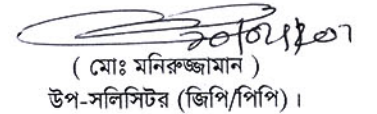 ( মোঃ মনিরুজ্জামান )
উপ-সলিসিটর (জিপি/পিপি) ।